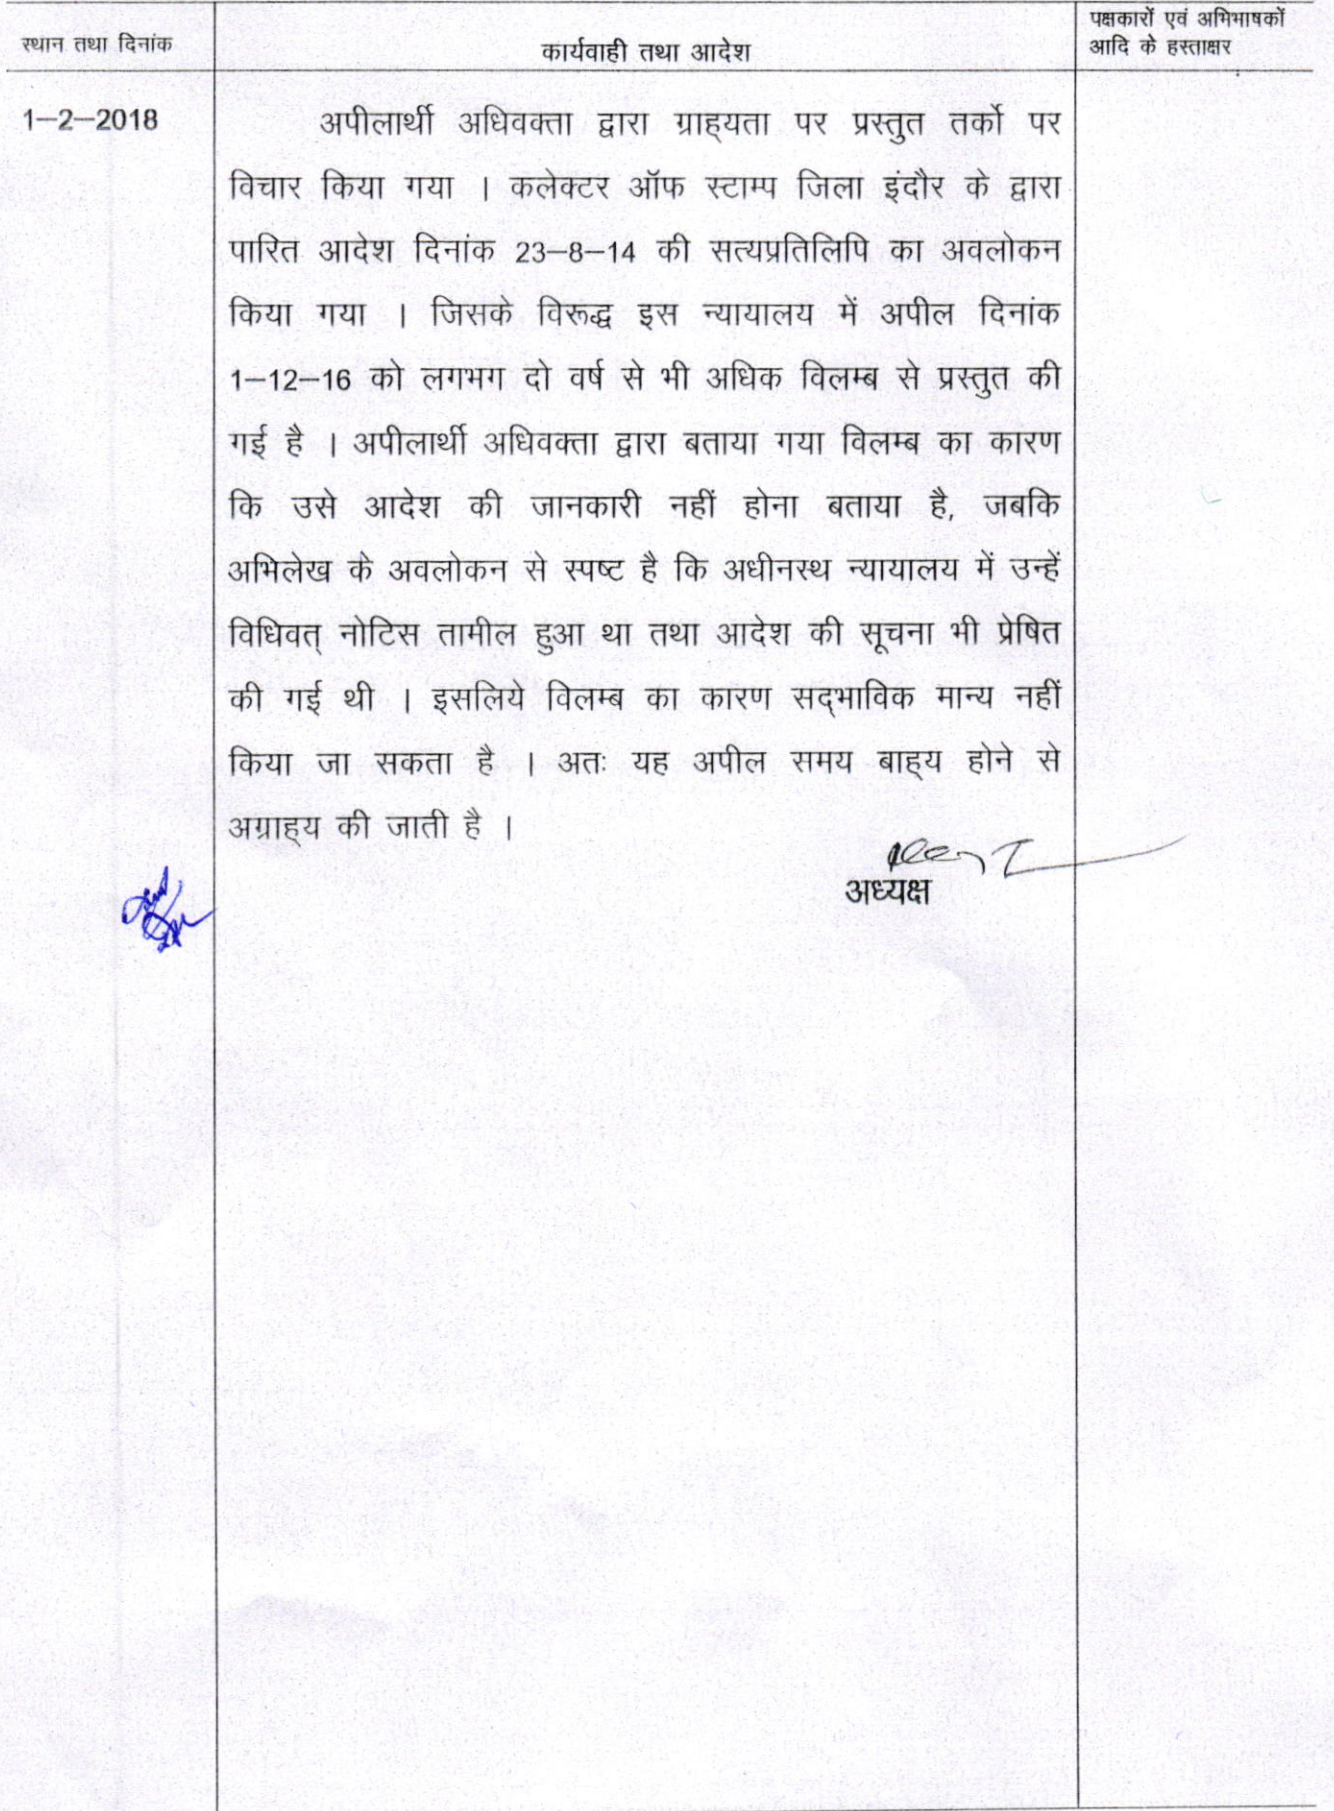 स्थान तथा दिनांक
कार्यवाही तथा आदेश
पक्षकारों एवं अभिभाषकों
आदि के हस्ताक्षर
1–2–2018
अपीलार्थी अधिवक्ता द्वारा ग्राह्यता पर प्रस्तुत तर्को पर
विचार किया गया । कलेक्टर ऑफ स्टाम्प जिला इंदौर के द्वारा
पारित आदेश दिनांक 23–8–14 की सत्यप्रतिलिपि का अवलोकन
किया गया । जिसके विरूद्ध इस न्यायालय में अपील दिनांक
1–12–16 को लगभग दो वर्ष से भी अधिक विलम्ब से प्रस्तुत की
गई है । अपीलार्थी अधिवक्ता द्वारा बताया गया विलम्ब का कारण
कि उसे आदेश की जानकारी नहीं होना बताया है, जबकि
अभिलेख के अवलोकन से स्पष्ट है कि अधीनस्थ न्यायालय में उन्हें
विधिवत् नोटिस तामील हुआ था तथा आदेश की सूचना भी प्रेषित
की गई थी । इसलिये विलम्ब का कारण सद्‌भाविक मान्य नहीं
किया जा सकता है । अतः यह अपील समय बाह्य होने से
अग्राह्य की जाती है ।
अध्यक्ष